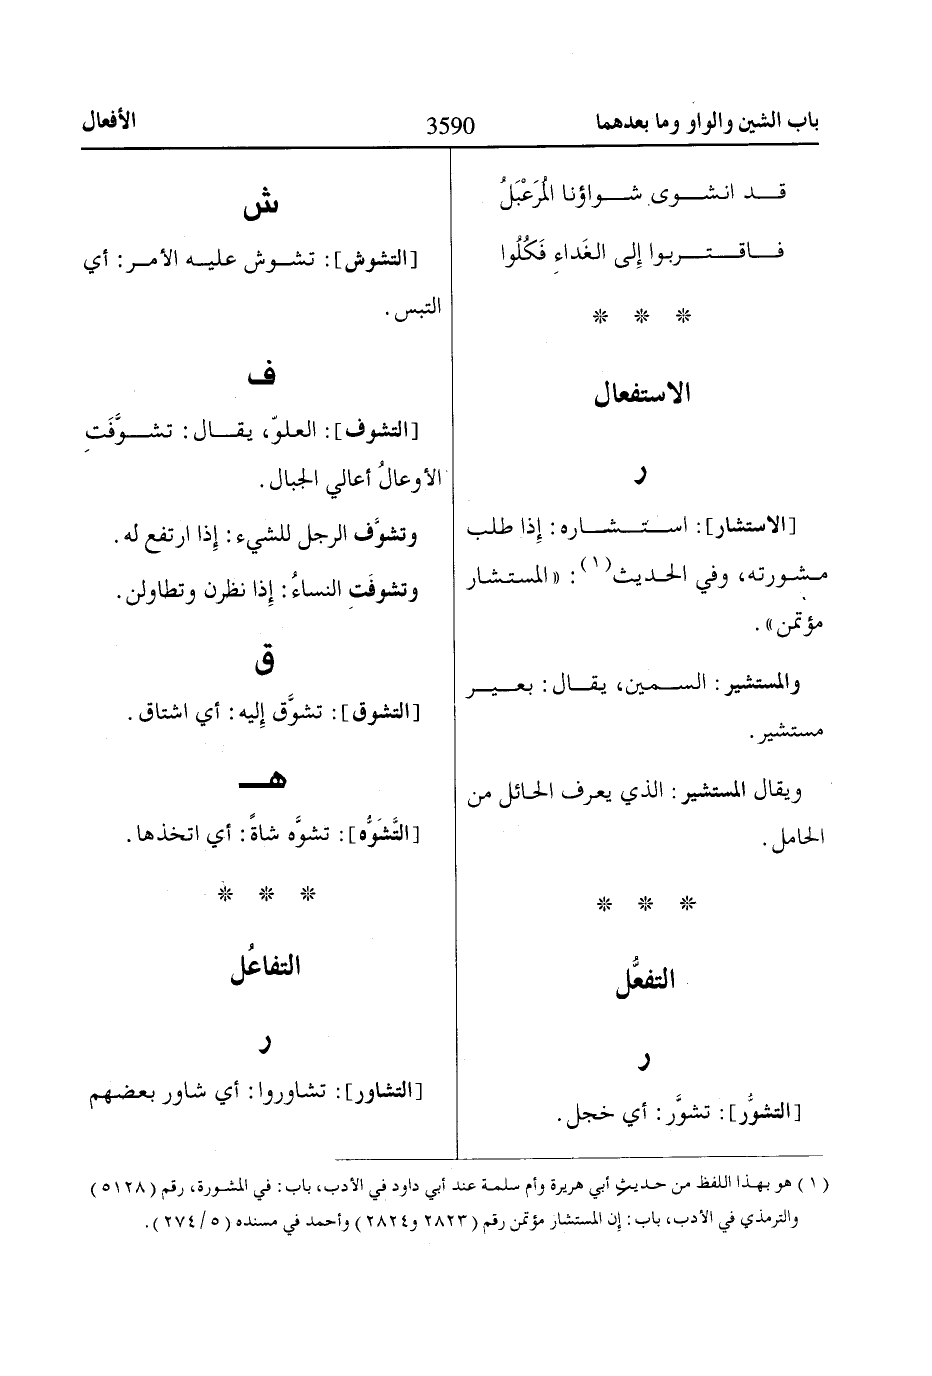 باب الشين والواو وما بعدهما
3590
الأفعال
قـــد انـشـــوى شـــواؤنا المُرَعْبَلُ
فــاقـتــربوا إلى الغَداءِ فَكُلُوا
* * *
الاستفعال
ر
[الاستشار]: استــشــاره: إذا طلب
مشورته، وفي الحديث(١): «المستشار
مؤتمن».
والمستشير: السـمين، يقـال: بعـيـر
مستشير.
ويقال المستشير: الذي يعرف الحائل من
الحامل.
* * *
التفعُّل
ر
[التشوُّر]: تشوَّر: أي خجل.
ش
[التشوش]: تشـوش عليـه الأمـر: أي
التبس.
ف
[التشوف]: العلوّ، يقـال: تشـوَّفَت
الأوعالُ أعالي الجبال.
وتشوَّف الرجل للشيء: إذا ارتفع له.
وتشوفَت النساءُ: إذا نظرن وتطاولن.
ق
[التشوق]: تشوَّق إليه: أي اشتاق.
هـ
[التَّشَوُّه]: تشوَّه شاةً: أي اتخذها.
* * *
التفاعُل
ر
[التشاور]: تشاوروا: أي شاور بعضهم
(١) هو بهذا اللفظ من حديث أبي هريرة وأم سلمة عند أبي داود في الأدب، باب: في المشورة، رقم (٥١٢٨)
والترمذي في الأدب، باب: إن المستشار مؤتمن رقم (٢٨٢٣ و٢٨٢٤) وأحمد في مسنده (٥/٢٧٤).